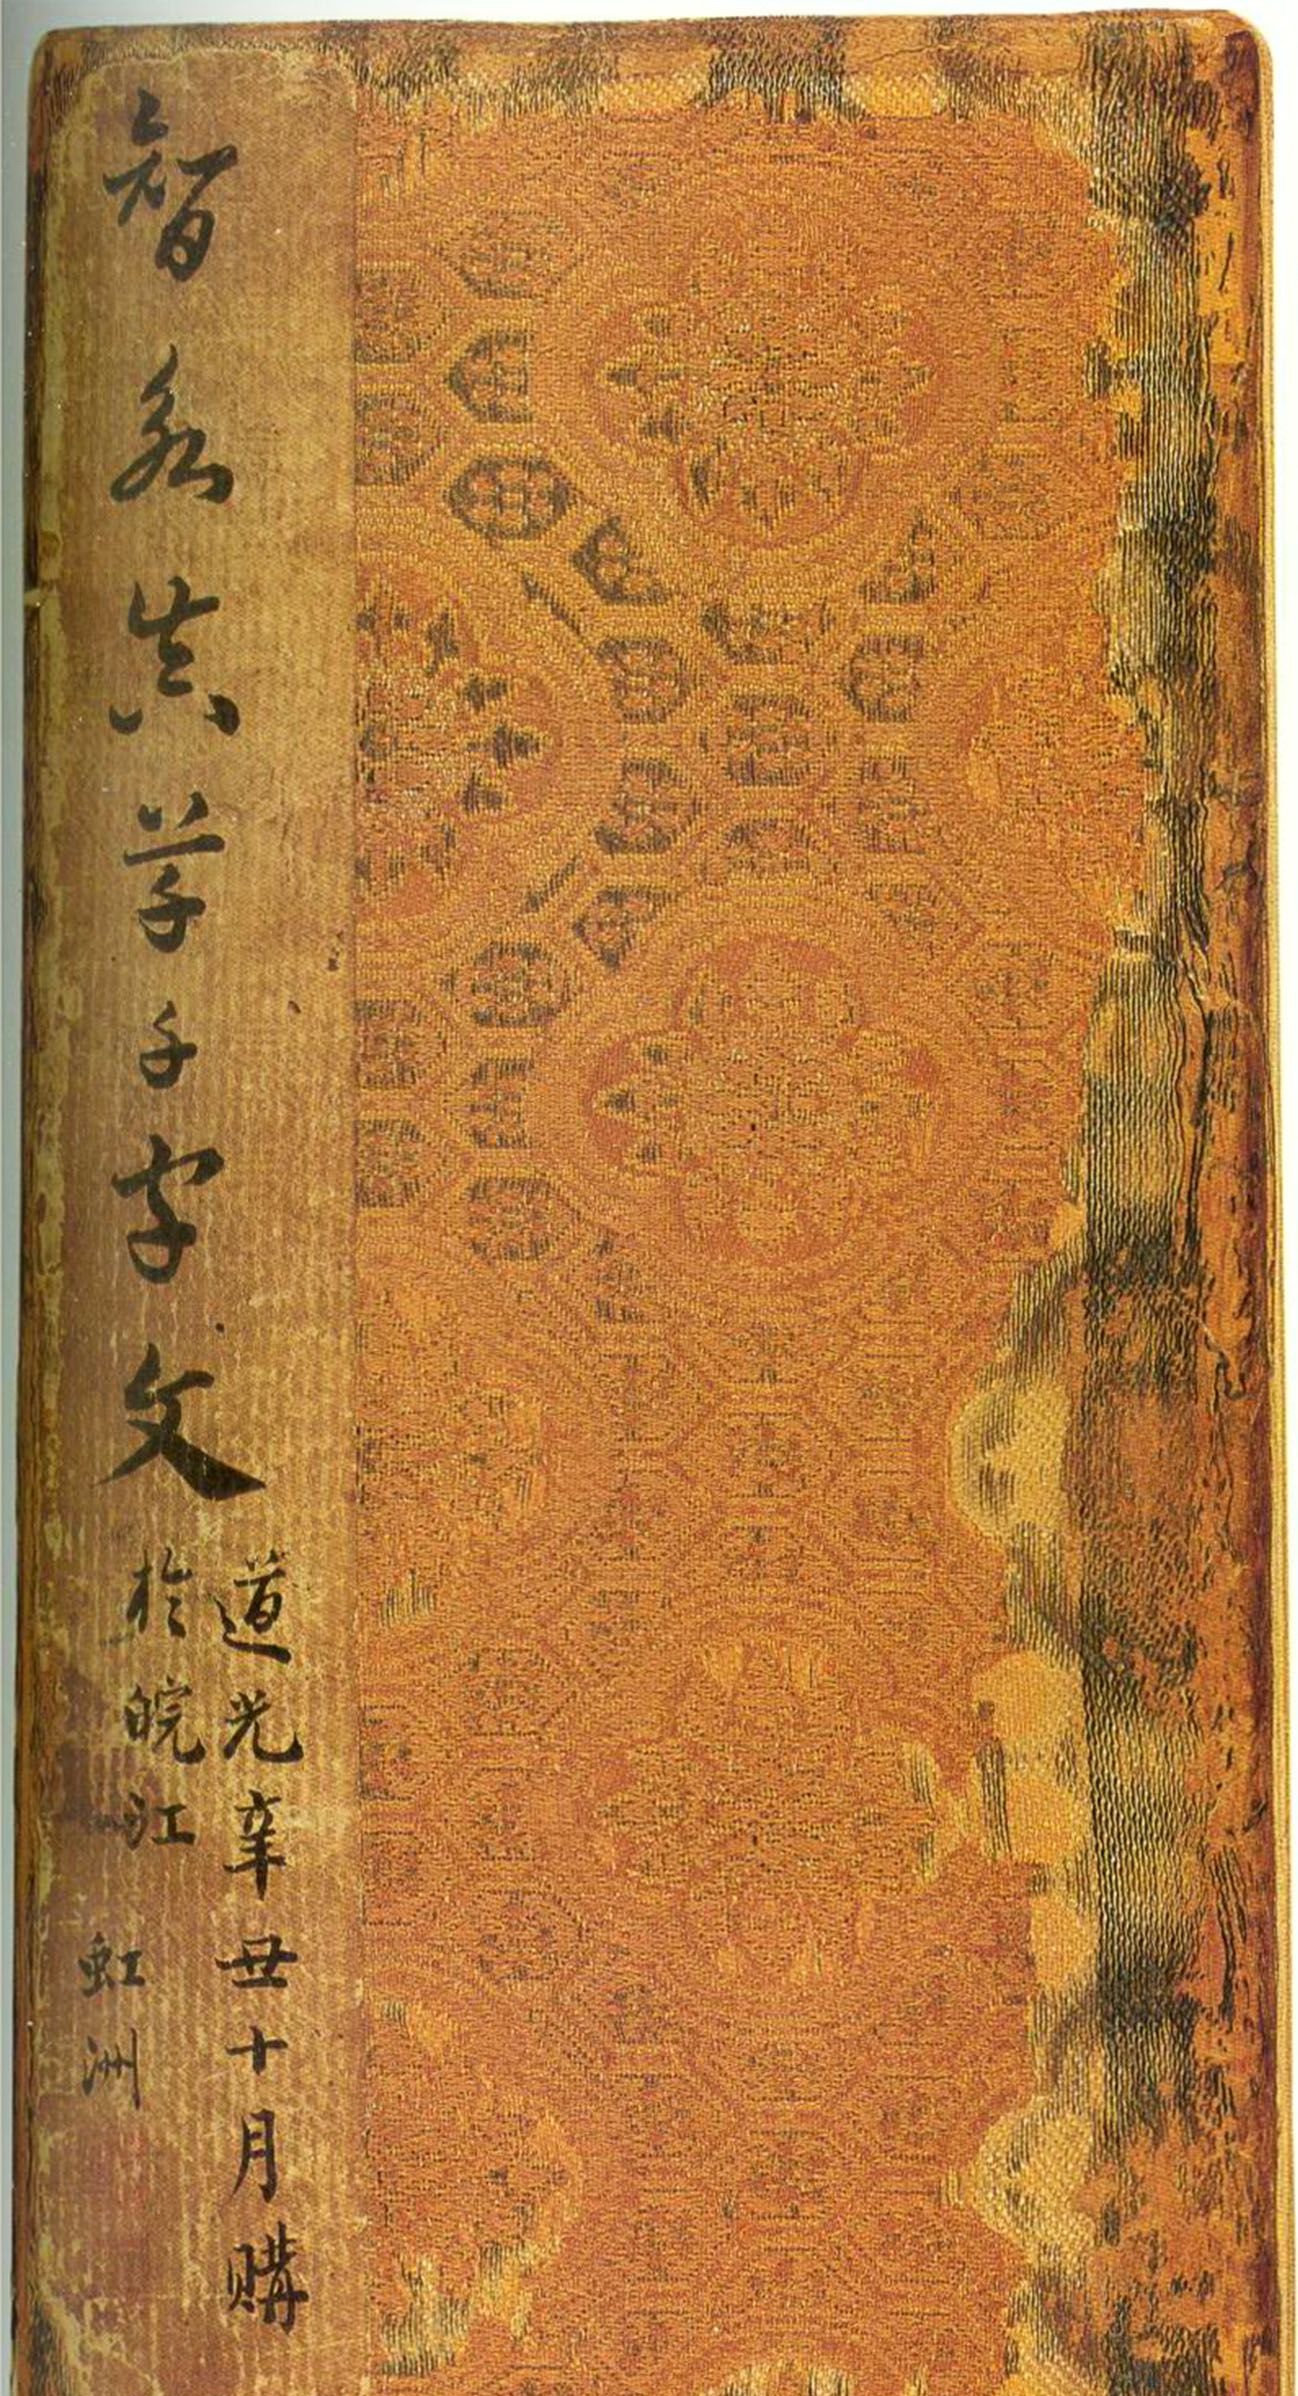 智永真草千字文
道光辛丑十月購
於皖江
虹洲